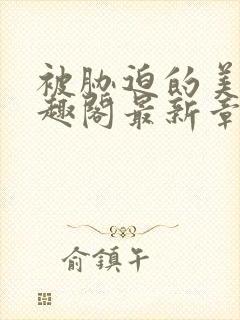 被胁迫的美
趣阁最新章
俞鎮午